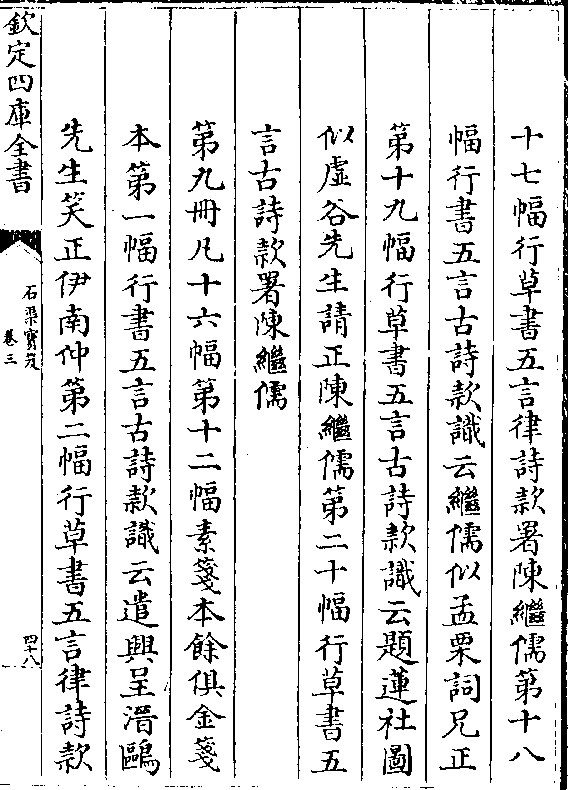 十七幅行草書五言律詩款署陳繼儒第十八
幅行書五言古詩款識云繼儒似孟栗詞兄正
第十九幅行草書五言古詩款識云題蓮社圖
似虛谷先生請正陳繼儒第二十幅行草書五
言古詩款署陳繼儒
第九冊凡十六幅第十二幅素箋本餘俱金箋
本第一幅行書五言古詩款識云遣興呈潛鷗
先生笑正伊南仲第二幅行草書五言律詩款
欽定四庫全書
石渠寶笈
卷三
四十八